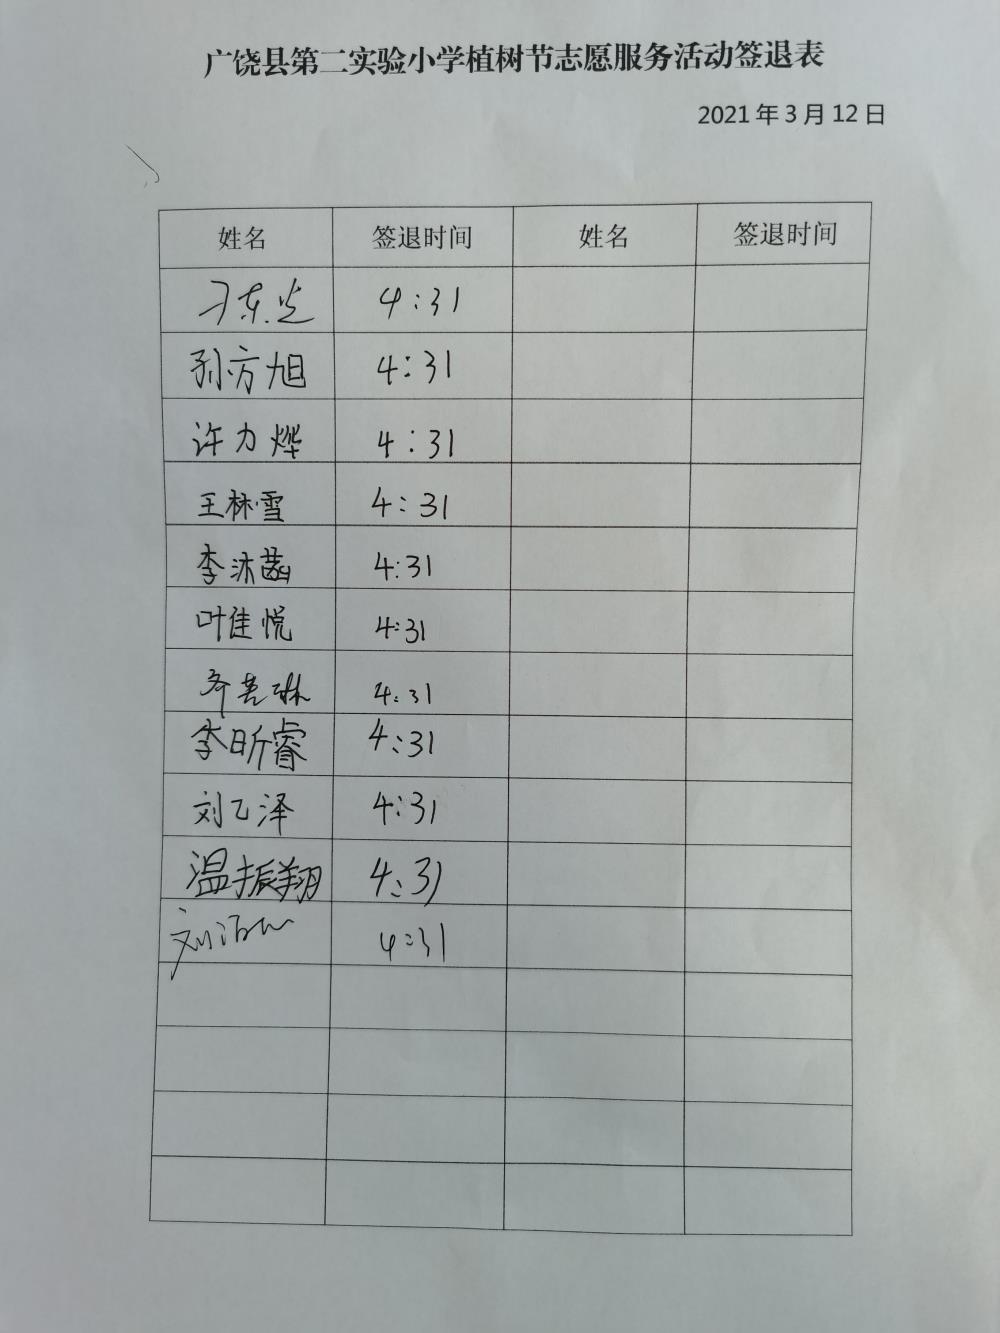 广饶县第二实验小学植树节志愿服务活动签退表
2021年3月12日
姓名 签退时间 姓名 签退时间
刁东光 4:31
孙方旭 4:31
许力烨 4:31
王林雪 4:31
李沐菡 4:31
叶佳悦 4:31
4:31
李昕睿 4:31
刘乙泽 4:31
温振翔 4:31
刘 4:31